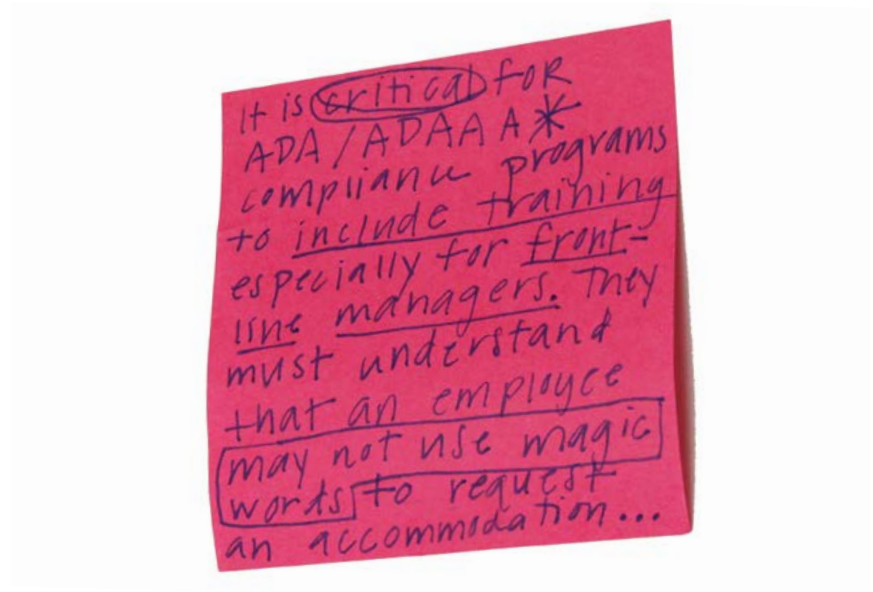 It is critical for
ADA/ADAAA*
compliance programs
to include training
especially for front-
line managers. They
must understand
that an employee
may not use magic
words to request
an accommodation...